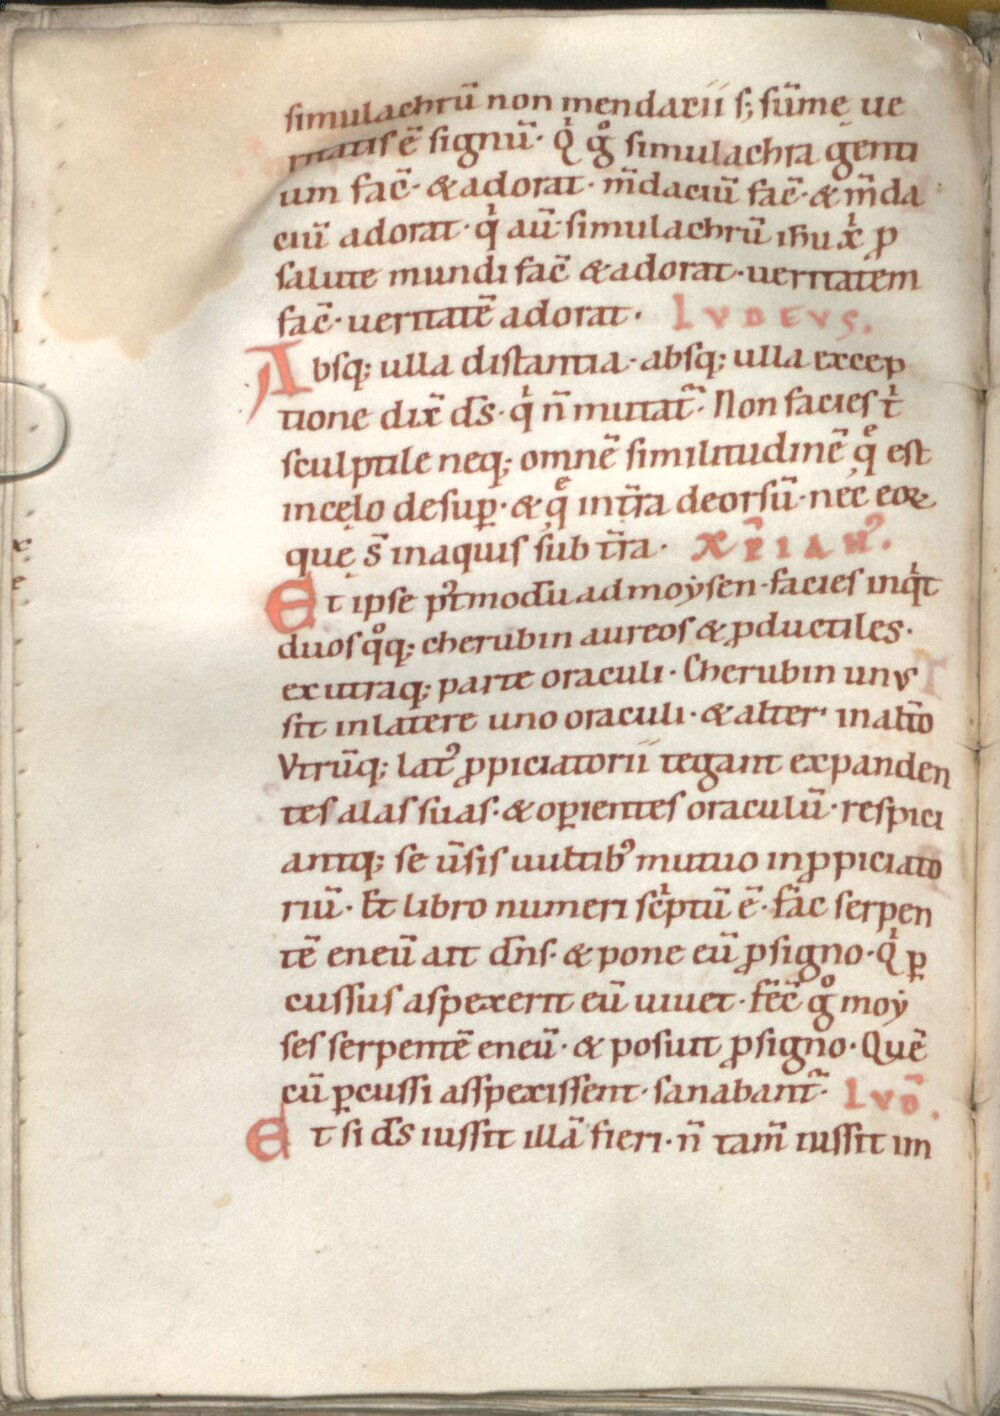 simulachrũ non mendacii s; sũme ue
ritatis ē signũ· Qͥ gͦ simulachra genti
um fac̄· & adorat· m̄daciũ fac̄· & m̄da
ciũ adorat· qͥ aũ simulachrũ ihu xͥ ꝓ
salute mundi fac̄ & adorat· ueritatem
fac̄· ueritatē adorat· IVDEVS.
Absq; ulla distantia· absq; ulla excep
tione dix̄ d̄s· qͥ n̄ mutat᷑· Non facies tͥ
sculptile neq; omnē similitudinē qͤ est
in cęlo desuꝑ· & qͤ in t̄ra deorsũ· nec eoꝝ
quę s̄ in aquis sub t̄ra· XP̄IANꝰ.
Et ipse pt᷒modũ ad moẏsen· facies inqͥt
duos qͦq; cherubin aureos & ꝓductiles·
ex utraq; parte oraculi· Cherubin unus
sit in latere uno oraculi· & alter· in alt̄o
Vtrũq; lat᷒ ꝓpiciatorii tegant expanden
tes alas suas· & oꝑientes oraculũ· respici
antq; se ũsis uultib᷒ mutuo in ꝓpiciato
riũ· Et libro numeri scͥptũ ē· fac serpen
tē eneũ ait dn̄s· & pone eũ ꝓ signo· Qͥ ꝑ
cussus aspexerit eũ uiuet· fēc̄ gͦ moẏ
ses serpentē eneũ· & posuit ꝓ signo· Quē
cũ ꝑcussi asspexissent· sanabant᷑· IVD̄.
Et si d̄s iussit illā fieri· n̄ tam̄ iussit im